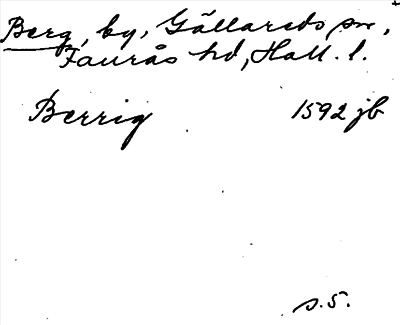 Berg, by, Gällareds sn,
Faurås hd, Hall. l.
Berrig 1592 jb
s. 5.